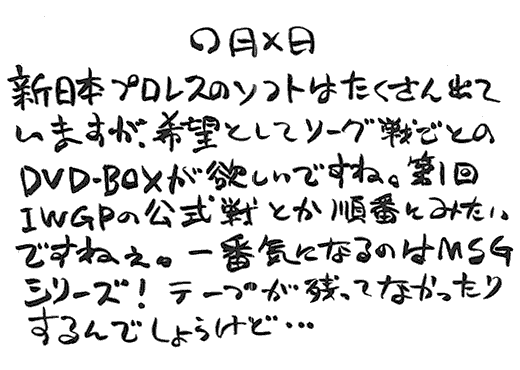 〇月×日
新日本プロレスのソフトはたくさん出て
いますが、希望としてリーグ戦ごとの
DVD-BOXが欲しいですね。第1回
IWGPの公式戦とか順番にみたい
ですねぇ。一番気になるのはMSG
シリーズ！テープが残ってなかったり
するんでしょうけど…